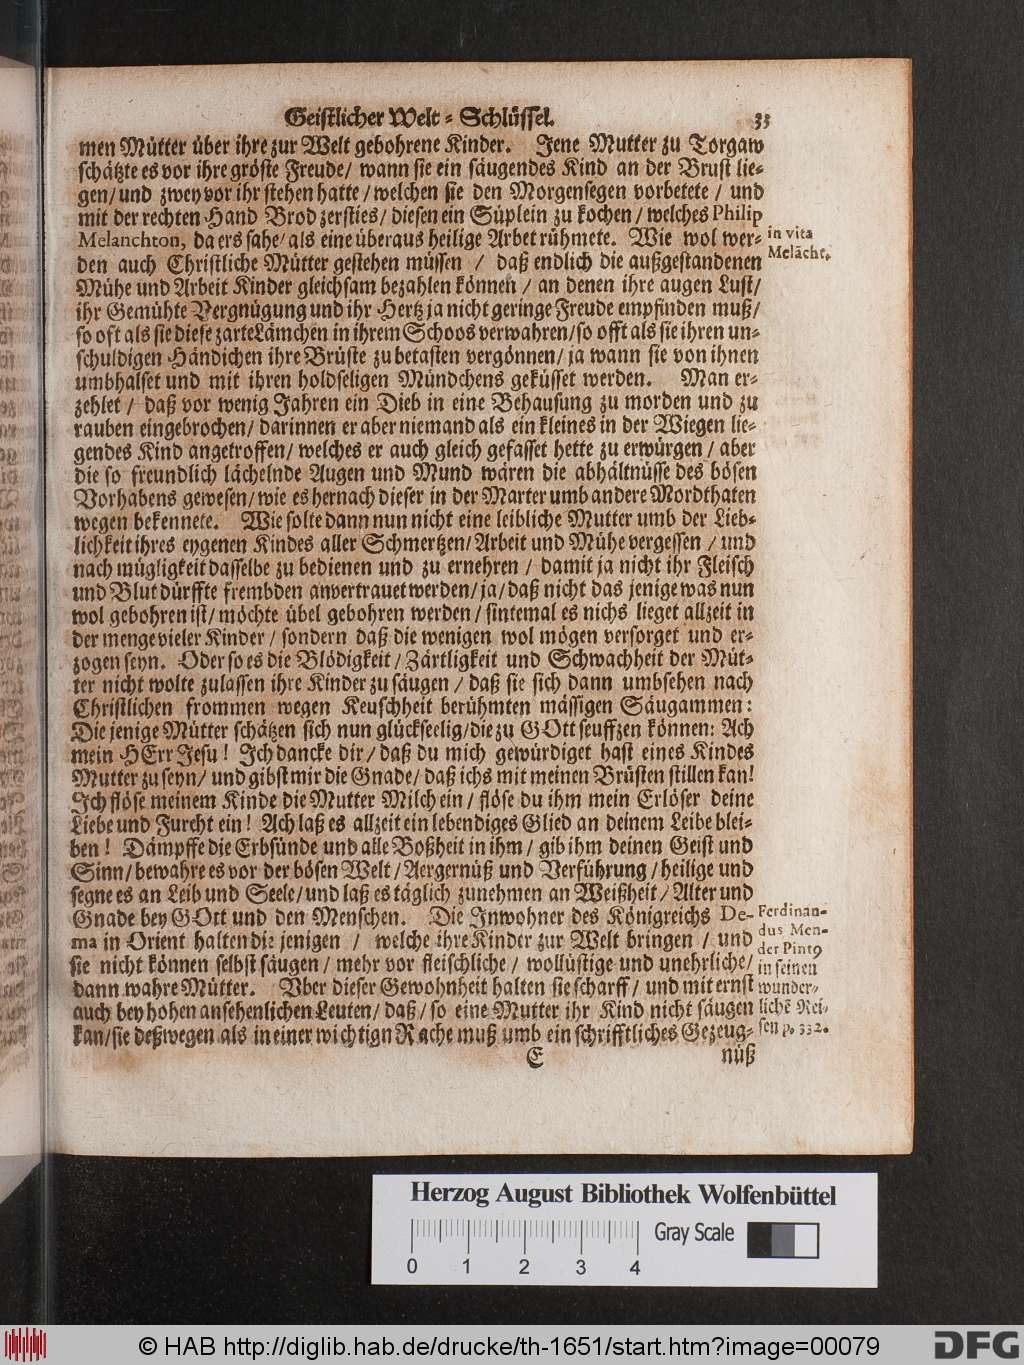 Geistlicher Welt-Schlüssel. 33
men Mütter über ihre zur Welt gebohrene Kinder. Jene Mutter zu Torgaw
schätzte es vor ihre gröste Freude/ wann sie ein säugendes Kind an der Brust lie-
gen/ und zwey vor ihr stehen hatte/ welchen sie den Morgensegen vorbetete / und
mit der rechten Hand Brod zersties/ diesen ein Süplein zu kochen/ welches Philip
Melanchton, da ers sahe/ als eine überaus heilige Arbet rühmete. Wie wol wer-
in vita
Melächt.
den auch Christliche Mütter gestehen müssen / daß endlich die außgestandenen
Mühe und Arbeit Kinder gleichsam bezahlen können / an denen ihre augen Lust/
ihr Gemühte Vergnügung und ihr Hertz ja nicht geringe Freude empfinden muß/
so oft als sie diese zarte Lämchen in ihrem Schoos verwahren/ so offt als sie ihren un-
schuldigen Händichen ihre Brüste zu betasten vergönnen/ ja wann sie von ihnen
umbhalset und mit ihren holdseligen Mündchens geküsset werden. Man er-
zehlet / daß vor wenig Jahren ein Dieb in eine Behausung zu morden und zu
rauben eingebrochen/ darinnen er aber niemand als ein kleines in der Wiegen lie-
gendes Kind angetroffen/ welches er auch gleich gefasset hette zu erwürgen / aber
die so freundlich lächelnde Augen und Mund wären die abhältnüsse des bösen
Vorhabens gewesen/ wie es hernach dieser in der Marter umb andere Mordthaten
wegen bekennete. Wie solte dann nun nicht eine leibliche Mutter umb der Lieb-
lichkeit ihres eygenen Kindes aller Schmertzen/ Arbeit und Mühe vergessen / und
nach mügligkeit dasselbe zu bedienen und zu ernehren / damit ja nicht ihr Fleisch
und Blut dürffte frembden anvertrauet werden/ ja/ daß nicht das jenige was nun
wol gebohren ist/ möchte übel gebohren werden/ sintemal es nichs lieget allzeit in
der menge vieler Kinder / sondern daß die wenigen wol mögen versorget und er-
zogen seyn. Oder so es die Blödigkeit / Zärtligkeit und Schwachheit der Müt-
ter nicht wolte zulassen ihre Kinder zu säugen / daß sie sich dann umbsehen nach
Christlichen frommen wegen Keuschheit berühmten mässigen Säugammen:
Die jenige Mütter schätzen sich nun glückseelig/ die zu GOtt seuffzen können: Ach
mein HErr Jesu! Ich dancke dir/ daß du mich gewürdiget hast eines Kindes
Mutter zu seyn/ und gibst mir die Gnade/ daß ichs mit meinen Brüsten stillen kan!
Ich flöse meinem Kinde die Mutter Milch ein/ flöse du ihm mein Erlöser deine
Liebe und Furcht ein! Ach laß es allzeit ein lebendiges Glied an deinem Leibe blei-
ben! Dämpffe die Erbsünde und alle Boßheit in ihm/ gib ihm deinen Geist und
Sinn/ bewahre es vor der bösen Welt/ Aergernüß und Verführung/ heilige und
segne es an Leib und Seele/ und laß es täglich zunehmen an Weißheit/ Alter und
Gnade bey GOtt und den Menschen. Die Inwohner des Königreichs De-
ma in Orient halten die jenigen / welche ihre Kinder zur Welt bringen / und
sie nicht können selbst säugen / mehr vor fleischliche / wollüstige und unehrliche/
dann wahre Mütter. Uber dieser Gewohnheit halten sie scharff/ und mit ernst
auch bey hohen ansehenlichen Leuten/ daß/ so eine Mutter ihr Kind nicht säugen
kan/ sie deßwegen als in einer wichtign Rache muß umb ein schrifftliches Gezeug-
Ferdinan-
dus Men-
der Pinto
in seinen
wunder-
lichē Rei-
sen p. 332.
E nüß
Herzog August Bibliothek Wolfenbüttel
Gray Scale
0 1 2 3 4
© HAB http://diglib.hab.de/drucke/th-1651/start.htm?image=00079
DFG